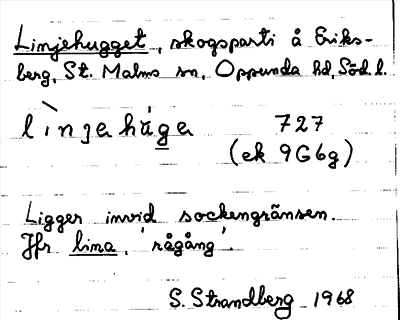 Linjehugget, skogsparti å Eriks-
berg, St. Malms sn, Oppunda hd, Söd. l.
lìnjehúga 727
(ek 9G6g)
Ligger invid sockengränsen.
Jfr lina, 'rågång'.
S. Strandberg 1968